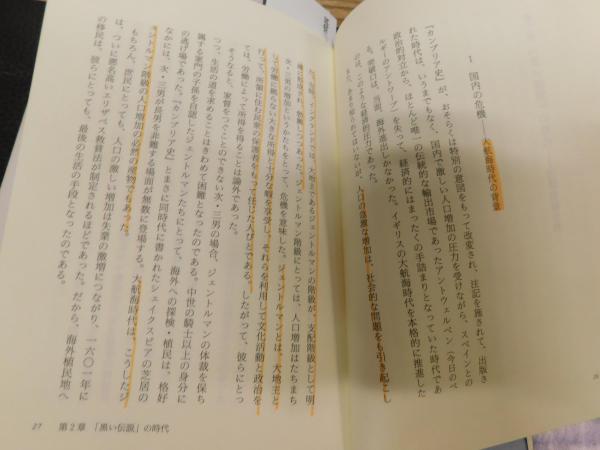 1 国内の危機――大航海時代の背景
『カンブリア史』が、おそらくは特別の意図をもって改変され、注記を施されて、出版さ
れた時代は、いうまでもなく、国内で激しい人口増加の圧力を受けながら、スペインとの
政治的対立から、ほとんど唯一の伝統的な輸出市場であったアントウェルペン（今日のベ
ルギーのアントワープ）を失って、経済的にはまったくの手詰まりとなっていた時代であ
る。突破口は、当然、海外進出しかなかった。イギリスの大航海時代を本格的に推進した
のは、このような経済的圧力であった。
人口の急激な増加は、社会的な問題をも引き起こし
た。当時、イングランドでは、大地主であるジェントルマンの階級が、支配階級として明
確に形成され、勃興しつつあった。ジェントルマン階級にとっては、人口増加はたちまち
次・三男の増加というかたちをとって、危機を意味した。ジェントルマンとは、大地主と
労働に頼らない大きな所得と十分な暇を享受し、それらを利用して文化活動と政治を
行って、所領に住む民衆の保護者をもって任じた人びとである。したがって、彼らにとっ
ては、労働によって所得を得ることは論外であった。
そうなると、家督をつぐことのできない次・三男の場合、ジェントルマンの体裁を保ち
つつ、生活の道を求めることはきわめて困難となったのである。中世の騎士以上の身分に
属する家門の力を自認したジェントルマンたちにとって、海外への探検・植民は、格好
の逃げ場であった。『カンブリア史』とまさに同時代に書かれたシェイクスピアの芝居の
なかには、次・三男が長男を非難する場面が無数に登場する。大航海時代は、こうしたジ
ェントルマン階級の人口増加の必然の産物でもあった。
もちろん、庶民にとっても、人口の激しい増加は失業の激増につながり、一六〇一年に
は、ついに悪名高いエリザベス救貧法が制定されるほどであった。だから、海外植民地へ
の移民は、彼らにとっても、最後の生活の手段となったのである。
27 第2章 「黒い伝説」の時代